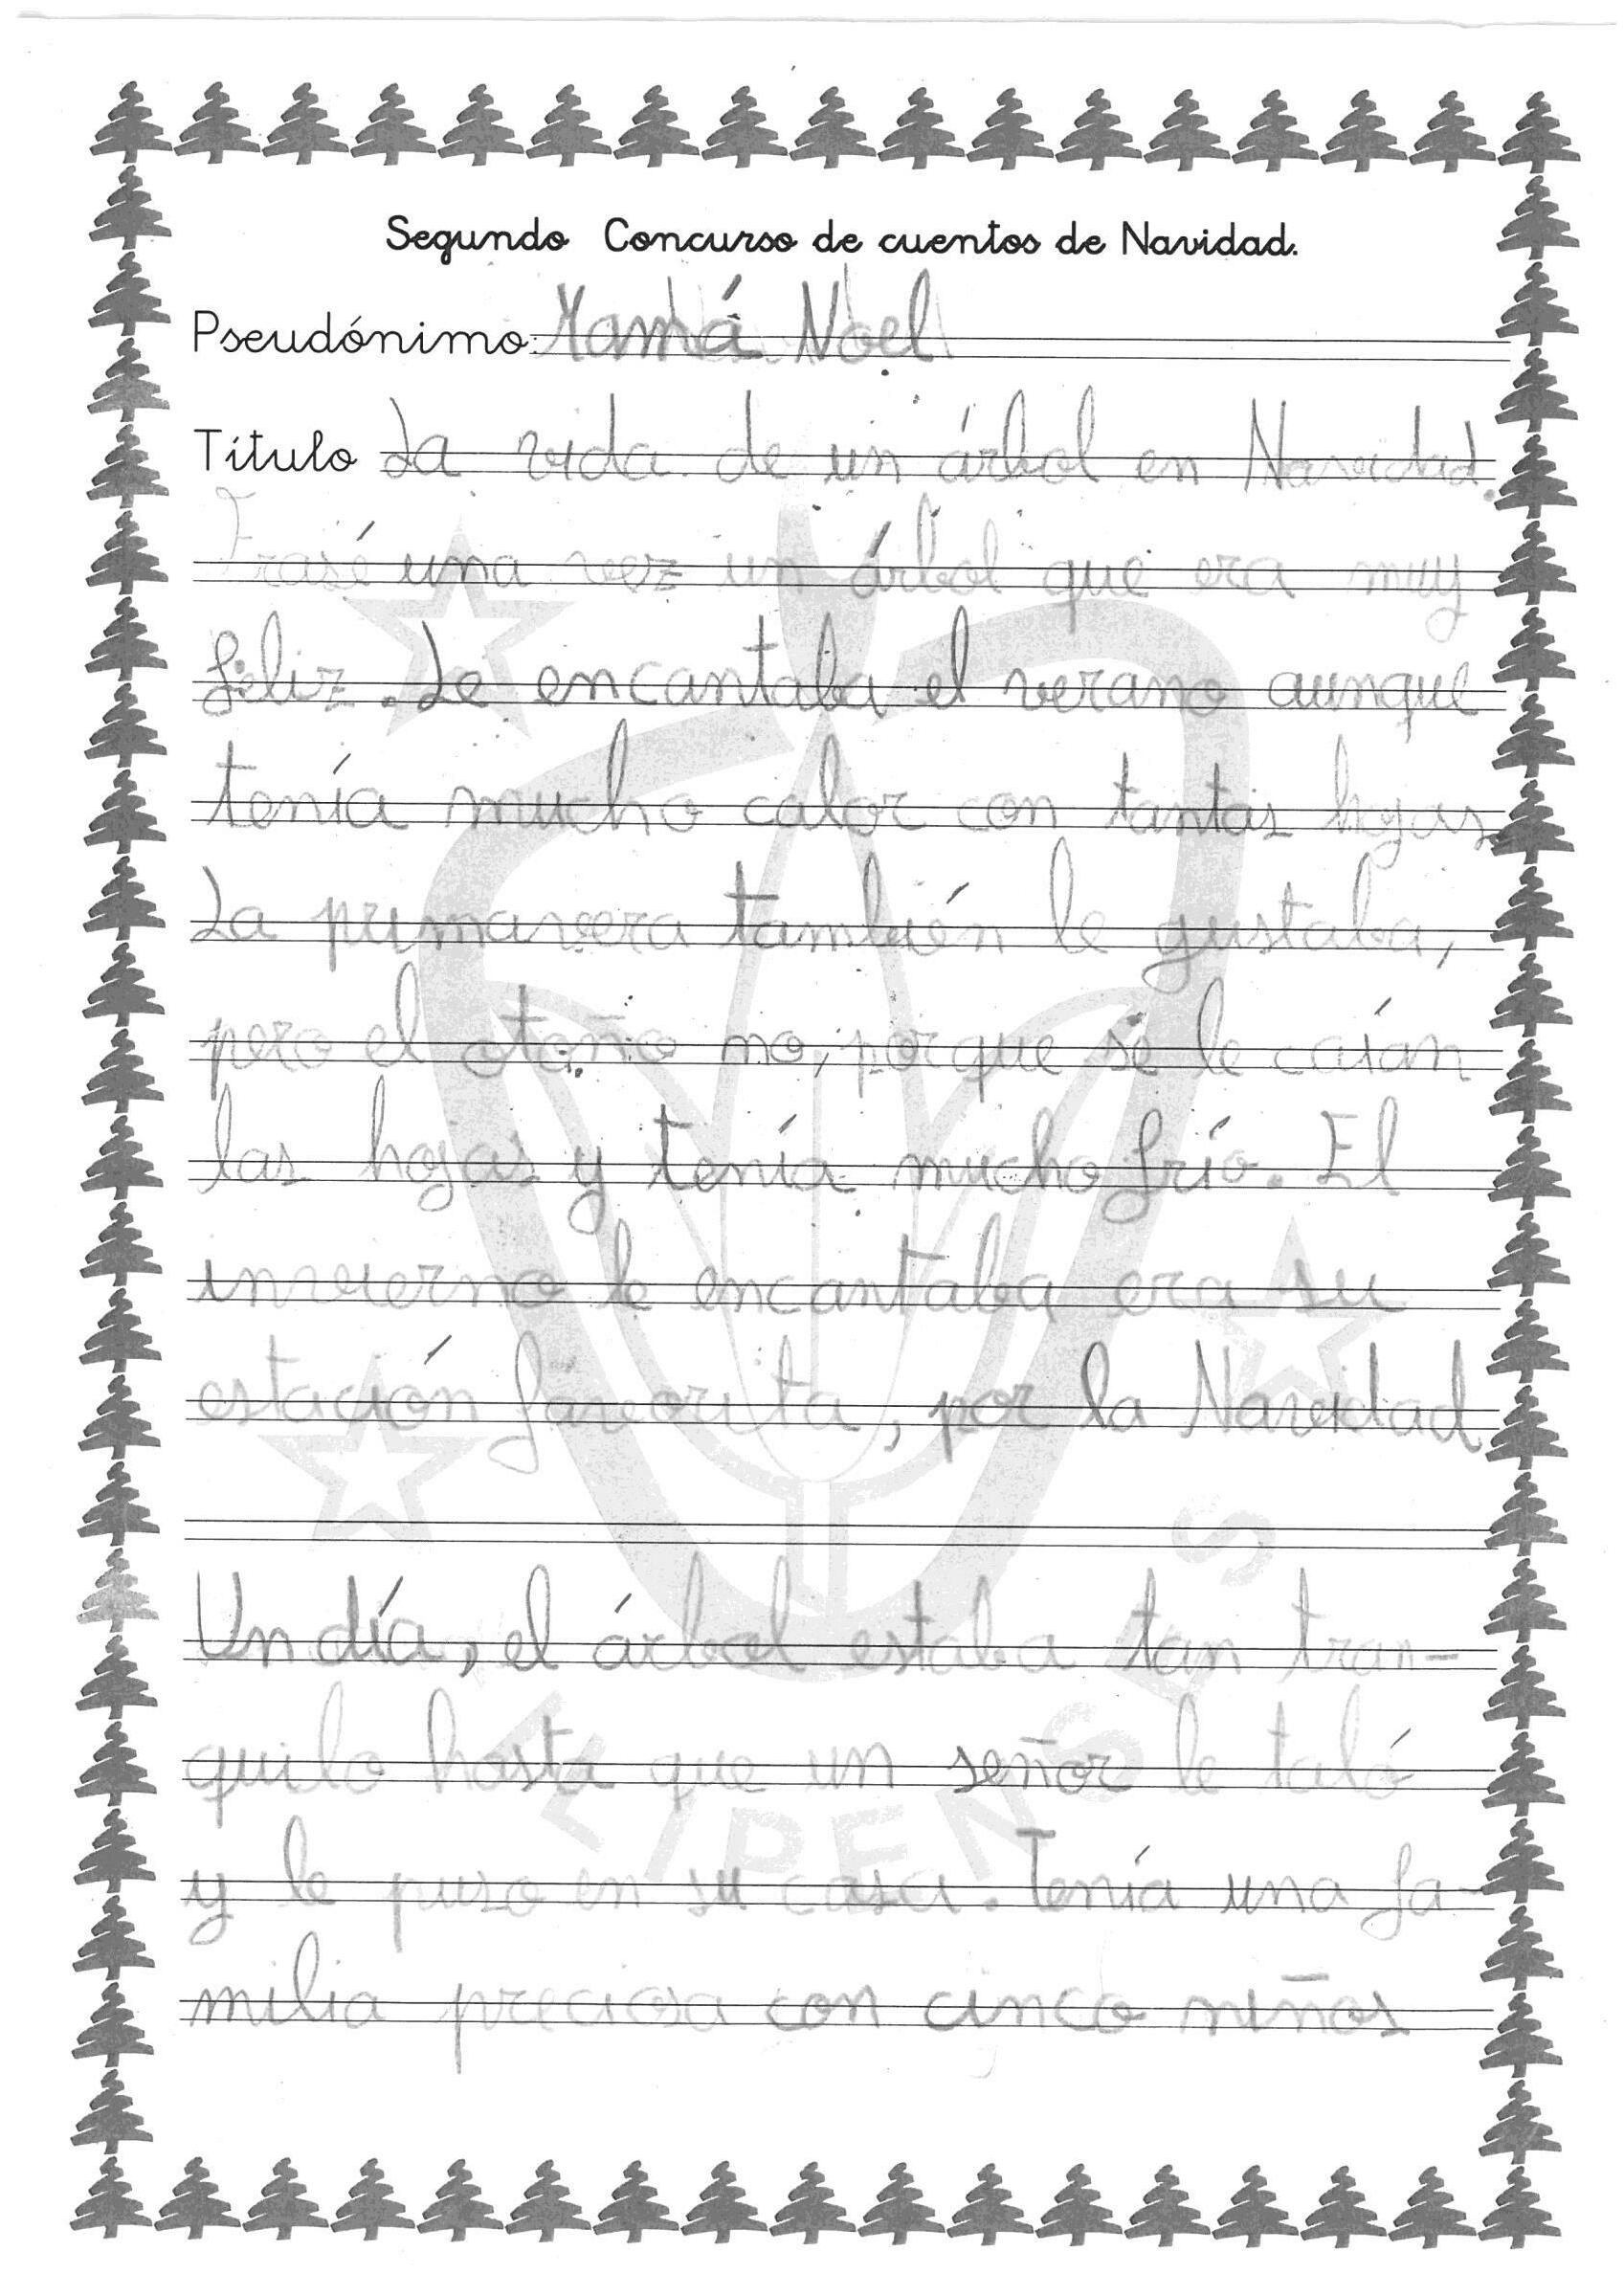 Segundo Concurso de cuentos de Navidad.
Pseudónimo: Mamá Noel
Título La vida de un árbol en Navidad.
Erasé una vez un árbol que era muy
feliz. Le encantaba el verano aunque
tenía mucho calor con tantas hojas.
La primavera también le gustaba,
pero el otoño no, porque se le caían
las hojas y tenía mucho frío. El
invierno le encantaba era su
estación favorita, por la Navidad
Un día, el árbol estaba tan tran-
quilo hasta que un señor le taló
y le puso en su casa. Tenía una fa-
milia preciosa con cinco niños